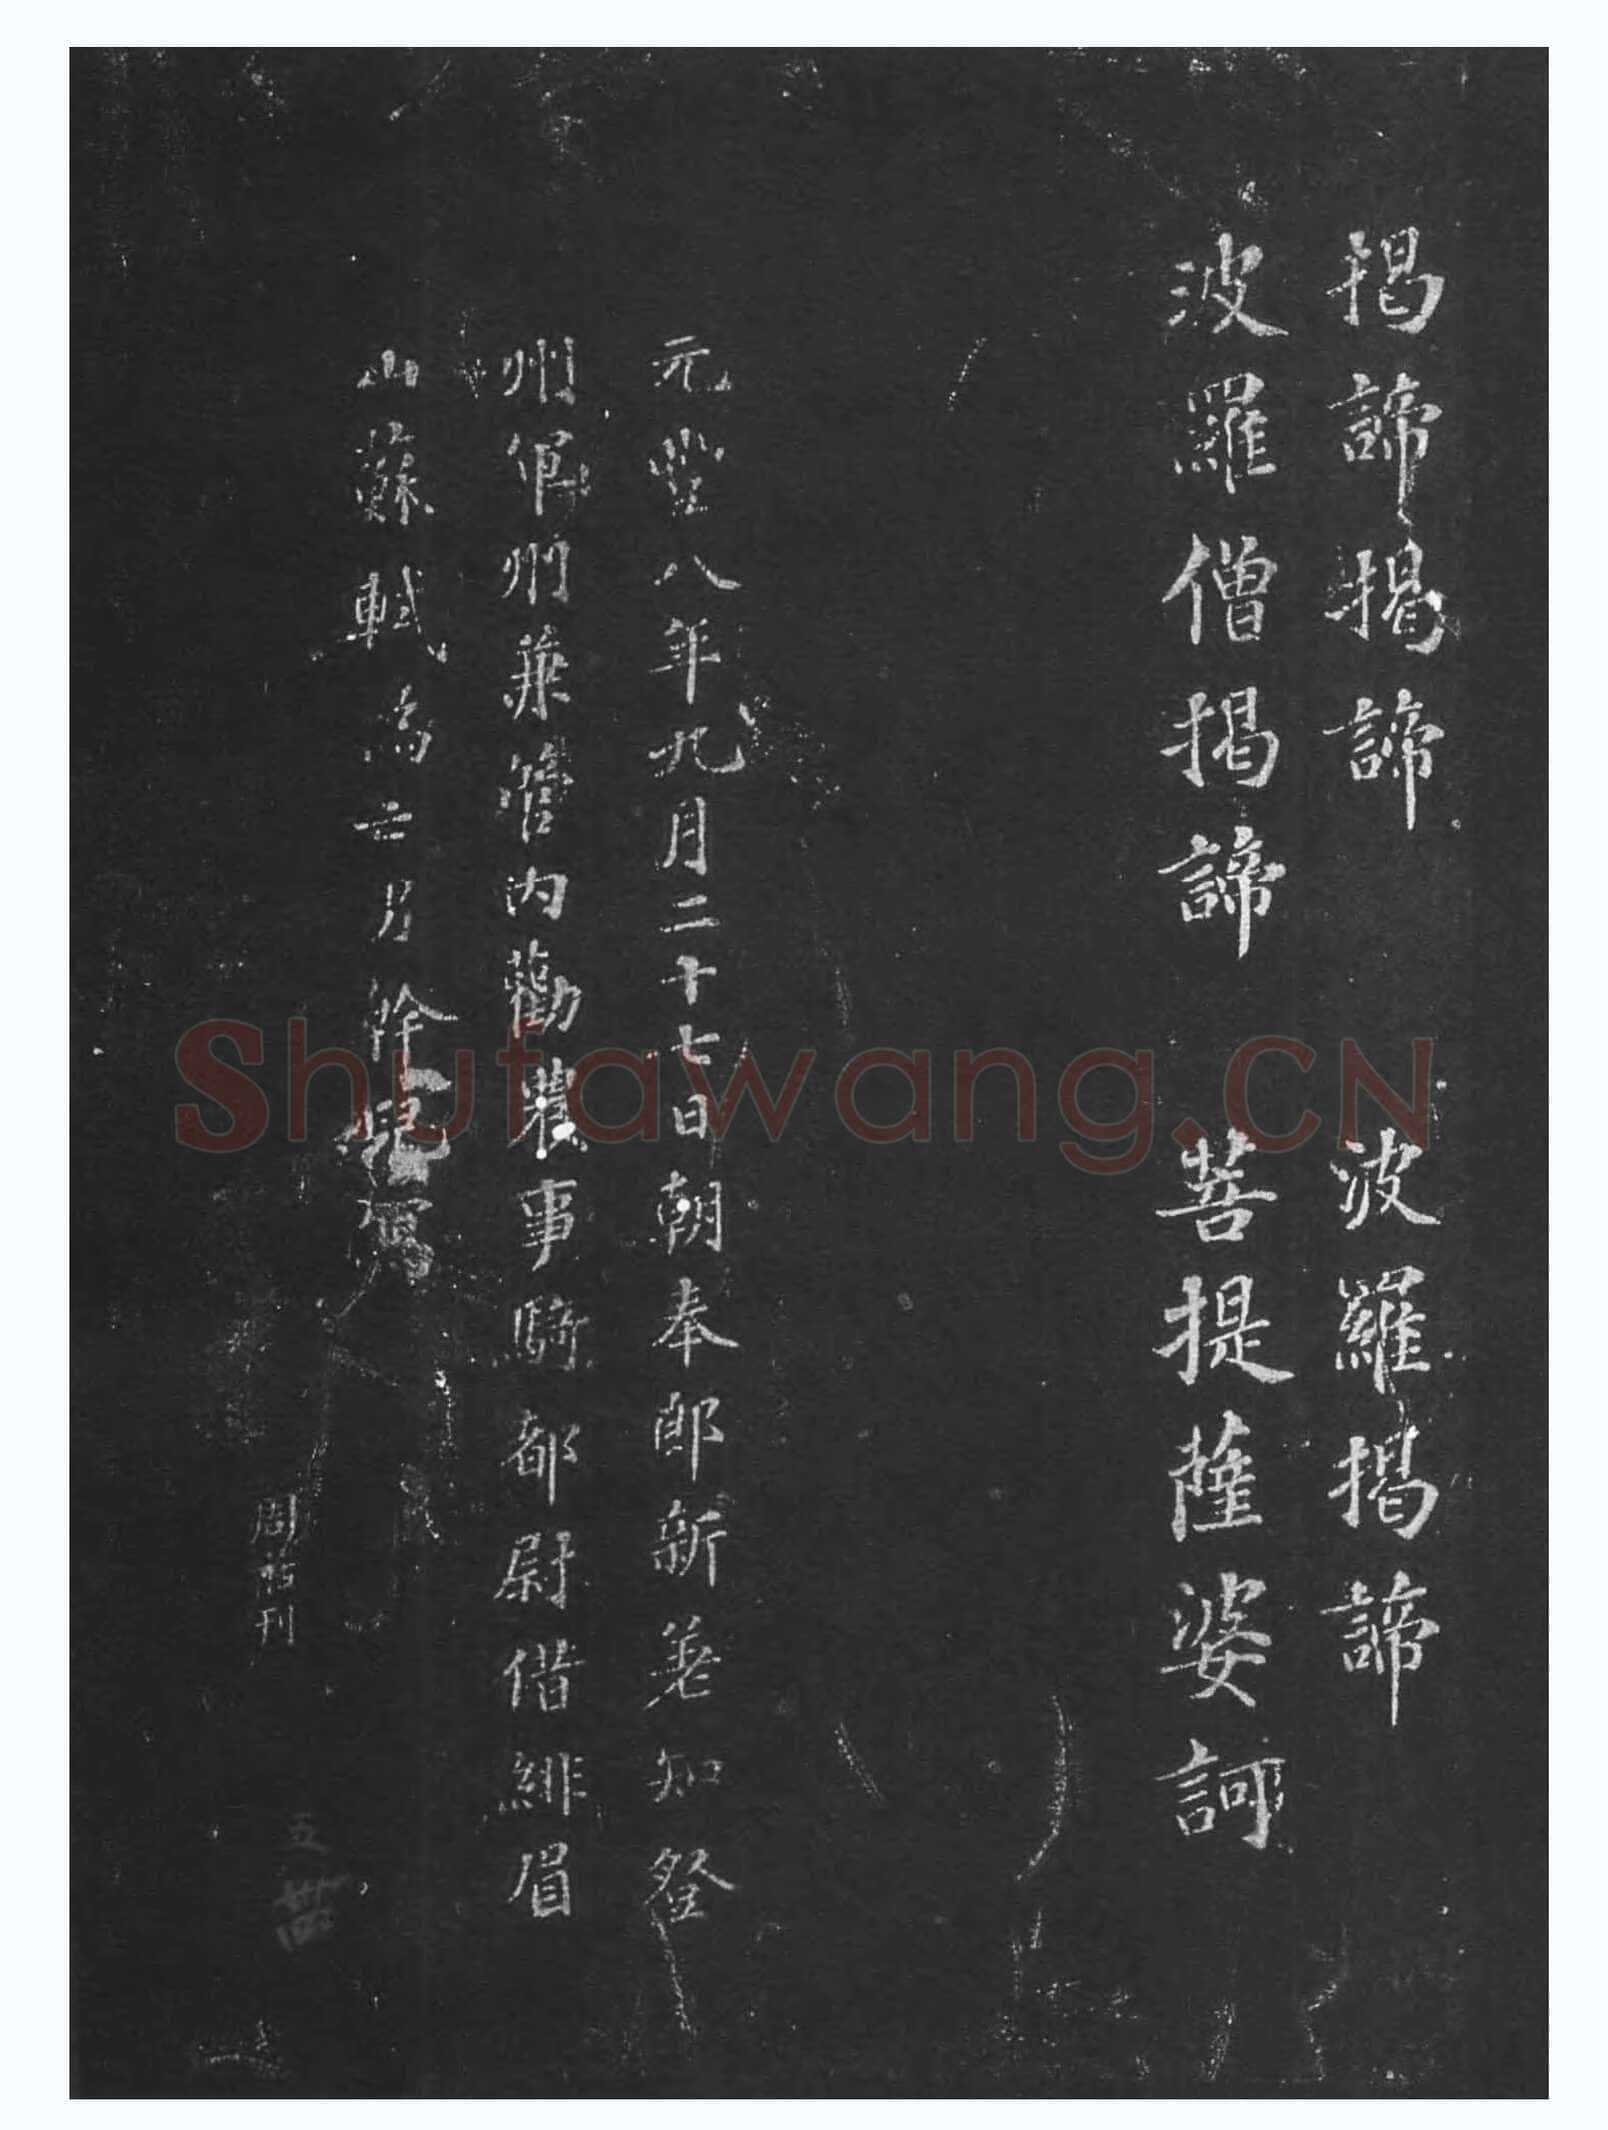 揭諦揭諦 波羅揭諦
波羅僧揭諦 菩提薩婆訶
元豐八年九月二十七日朝奉郎新差知登
州軍州兼管內勸農事騎都尉借緋眉
山蘇軾為亡男
周 刊
Shufawang.CN